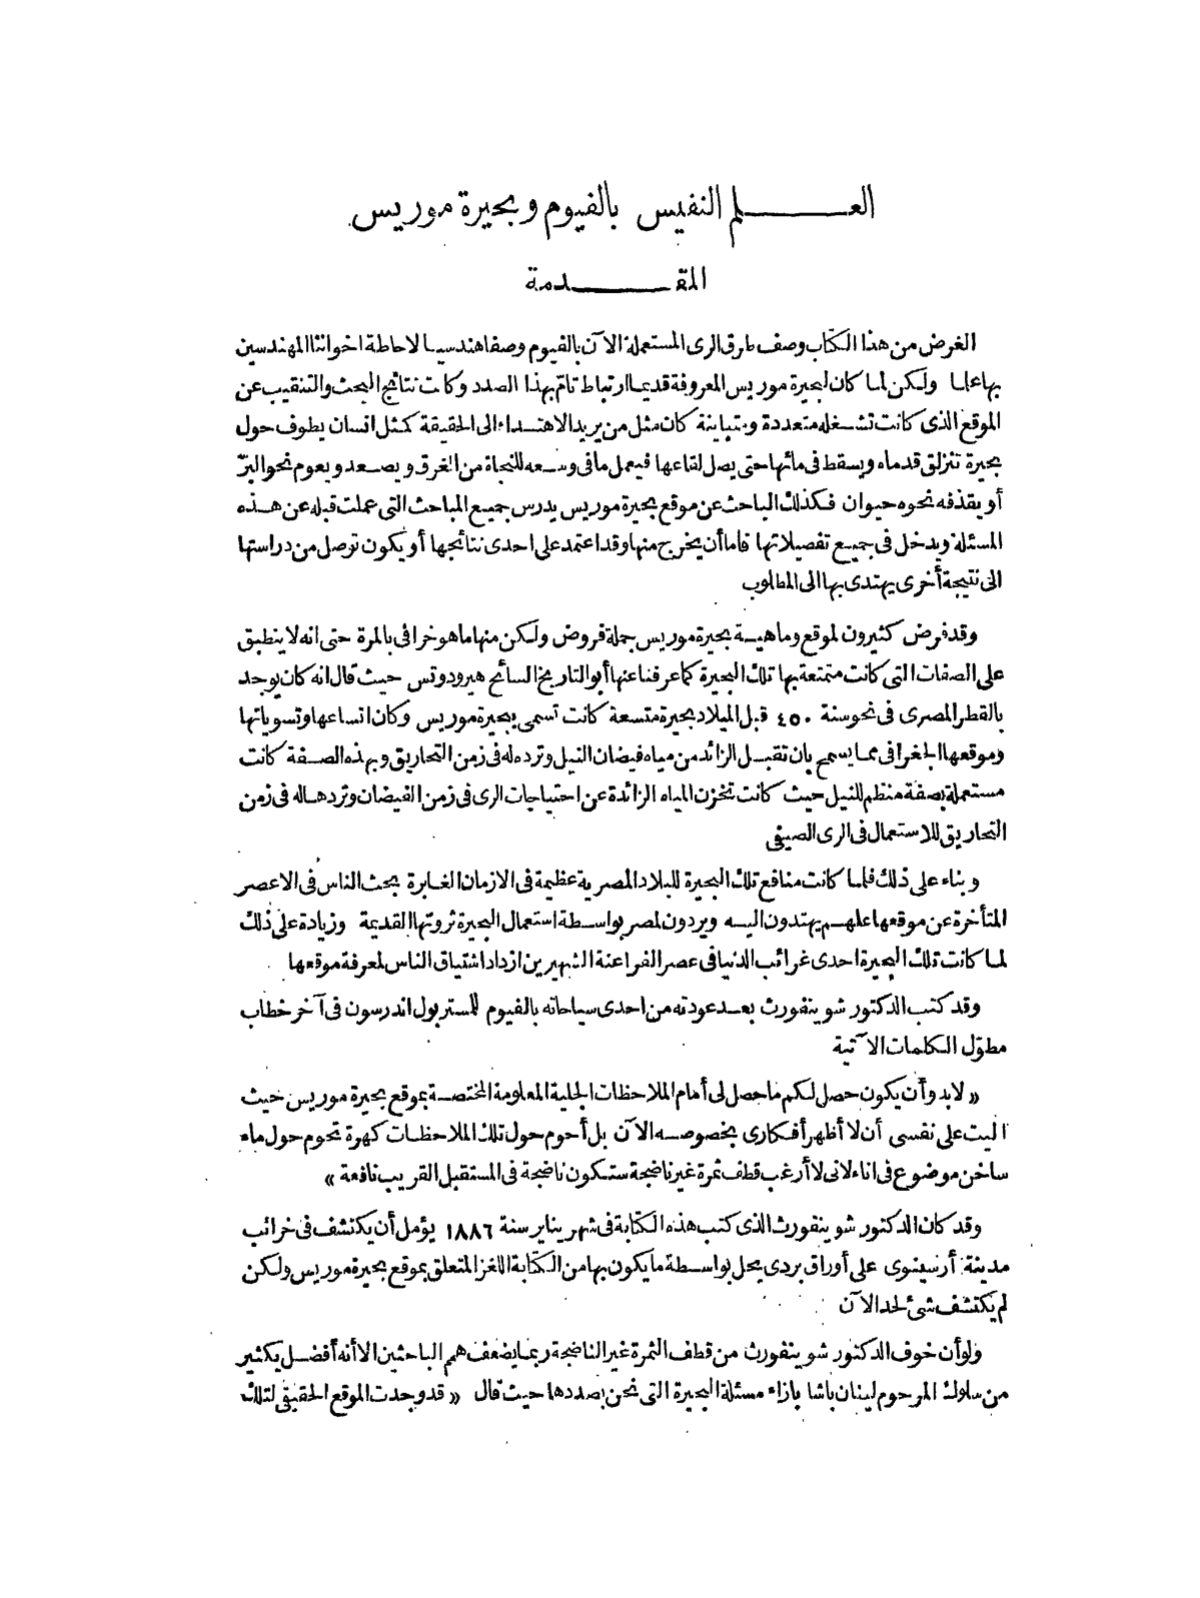 العلم النفيس بالفيوم وبحيرة موريس
المقدمة
الغرض من هذا الكتاب وصف طرق الرى المستعملة الآن بالفيوم وصفا هندسيا لاحاطة اخواننا المهندسين
بها علما ولكن لما كان لبحيرة موريس المعروفة قديما ارتباط تام بهذا الصدد وكانت نتائج البحث والتنقيب عن
الموقع الذى كانت تشغله متعددة ومتباينة كان مثل من يريد الاهتداء الى الحقيقة كمثل انسان يطوف حول
بحيرة تنزلق قدماه ويسقط فى مائها حتى يصل لقاعها فيعمل ما فى وسعه للنجاة من الغرق ويصعد ويعوم نحو البرّ
أو يقذفه نحوه حيوان فكذلك الباحث عن موقع بحيرة موريس يدرس جميع المباحث التى عملت قبله عن هذه
المسئلة ويدخل فى جميع تفصيلاتها فاما أن يخرج منها وقد اعتمد على احدى نتائجها أو يكون توصل من دراستها
الى نتيجة أخرى يهتدى بها الى المطلوب
وقد فرض كثيرون لموقع وماهية بحيرة موريس جملة فروض ولكن منها ما هو خرافى بالمرة حتى انه لا ينطبق
على الصفات التى كانت متمتعة بها تلك البحيرة كما عرفنا عنها أبو التاريخ السائح هيرودوتس حيث قال انه كان يوجد
بالقطر المصرى فى نحو سنة ٤٥٠ قبل الميلاد بحيرة متسعة كانت تسمى ببحيرة موريس وكان اتساعها وتسوياتها
وموقعها الجغرافى مما يسمح بان تقبل الزائد من مياه فيضان النيل وترده له فى زمن التحاريق وبهذه الصفة كانت
مستعملة بصفة منظم للنيل حيث كانت تخزن المياه الزائدة عن احتياجات الرى فى زمن الفيضان وتردها له فى زمن
التحاريق للاستعمال فى الرى الصيفى
وبناء على ذلك فلما كانت منافع تلك البحيرة للبلاد المصرية عظيمة فى الازمان الغابرة بحث الناس فى الاعصر
المتأخرة عن موقعها علهم يهتدون اليه ويردون لمصر بواسطة استعمال البحيرة ثروتها القديمة وزيادة على ذلك
لما كانت تلك البحيرة احدى غرائب الدنيا فى عصر الفراعنة الشهيرين ازداد اشتياق الناس لمعرفة موقعها
وقد كتب الدكتور شوينفورث بعد عودته من احدى سياحاته بالفيوم للمستر بول اندرسون فى آخر خطاب
مطوّل الكلمات الآتية
« لا بد وأن يكون حصل لكم ما حصل لى أمام الملاحظات الجلية المعلومة المختصة بموقع بحيرة موريس حيث
اليت على نفسى أن لا أظهر أفكارى بخصوصه الآن بل أحوم حول تلك الملاحظات كهرة تحوم حول ماء
ساخن موضوع فى اناء لانى لا أرغب قطف ثمرة غير ناضجة ستكون ناضجة فى المستقبل القريب نافعة »
وقد كان الدكتور شوينفورث الذى كتب هذه الكتابة فى شهر يناير سنة ١٨٨٦ يؤمل أن يكتشف فى خرائب
مدينة أرسينوى على أوراق بردى يحل بواسطة ما يكون بها من الكتابة اللغز المتعلق بموقع بحيرة موريس ولكن
لم يكتشف شئ لحد الآن
ولو أن خوف الدكتور شوينفورث من قطف الثمرة غير الناضجة ربما يضعف همم الباحثين الا أنه أفضل بكثير
من سلوك المرحوم لينان باشا بازاء مسئلة البحيرة التى نحن بصددها حيث قال « قد وجدت الموقع الحقيقى لتلك